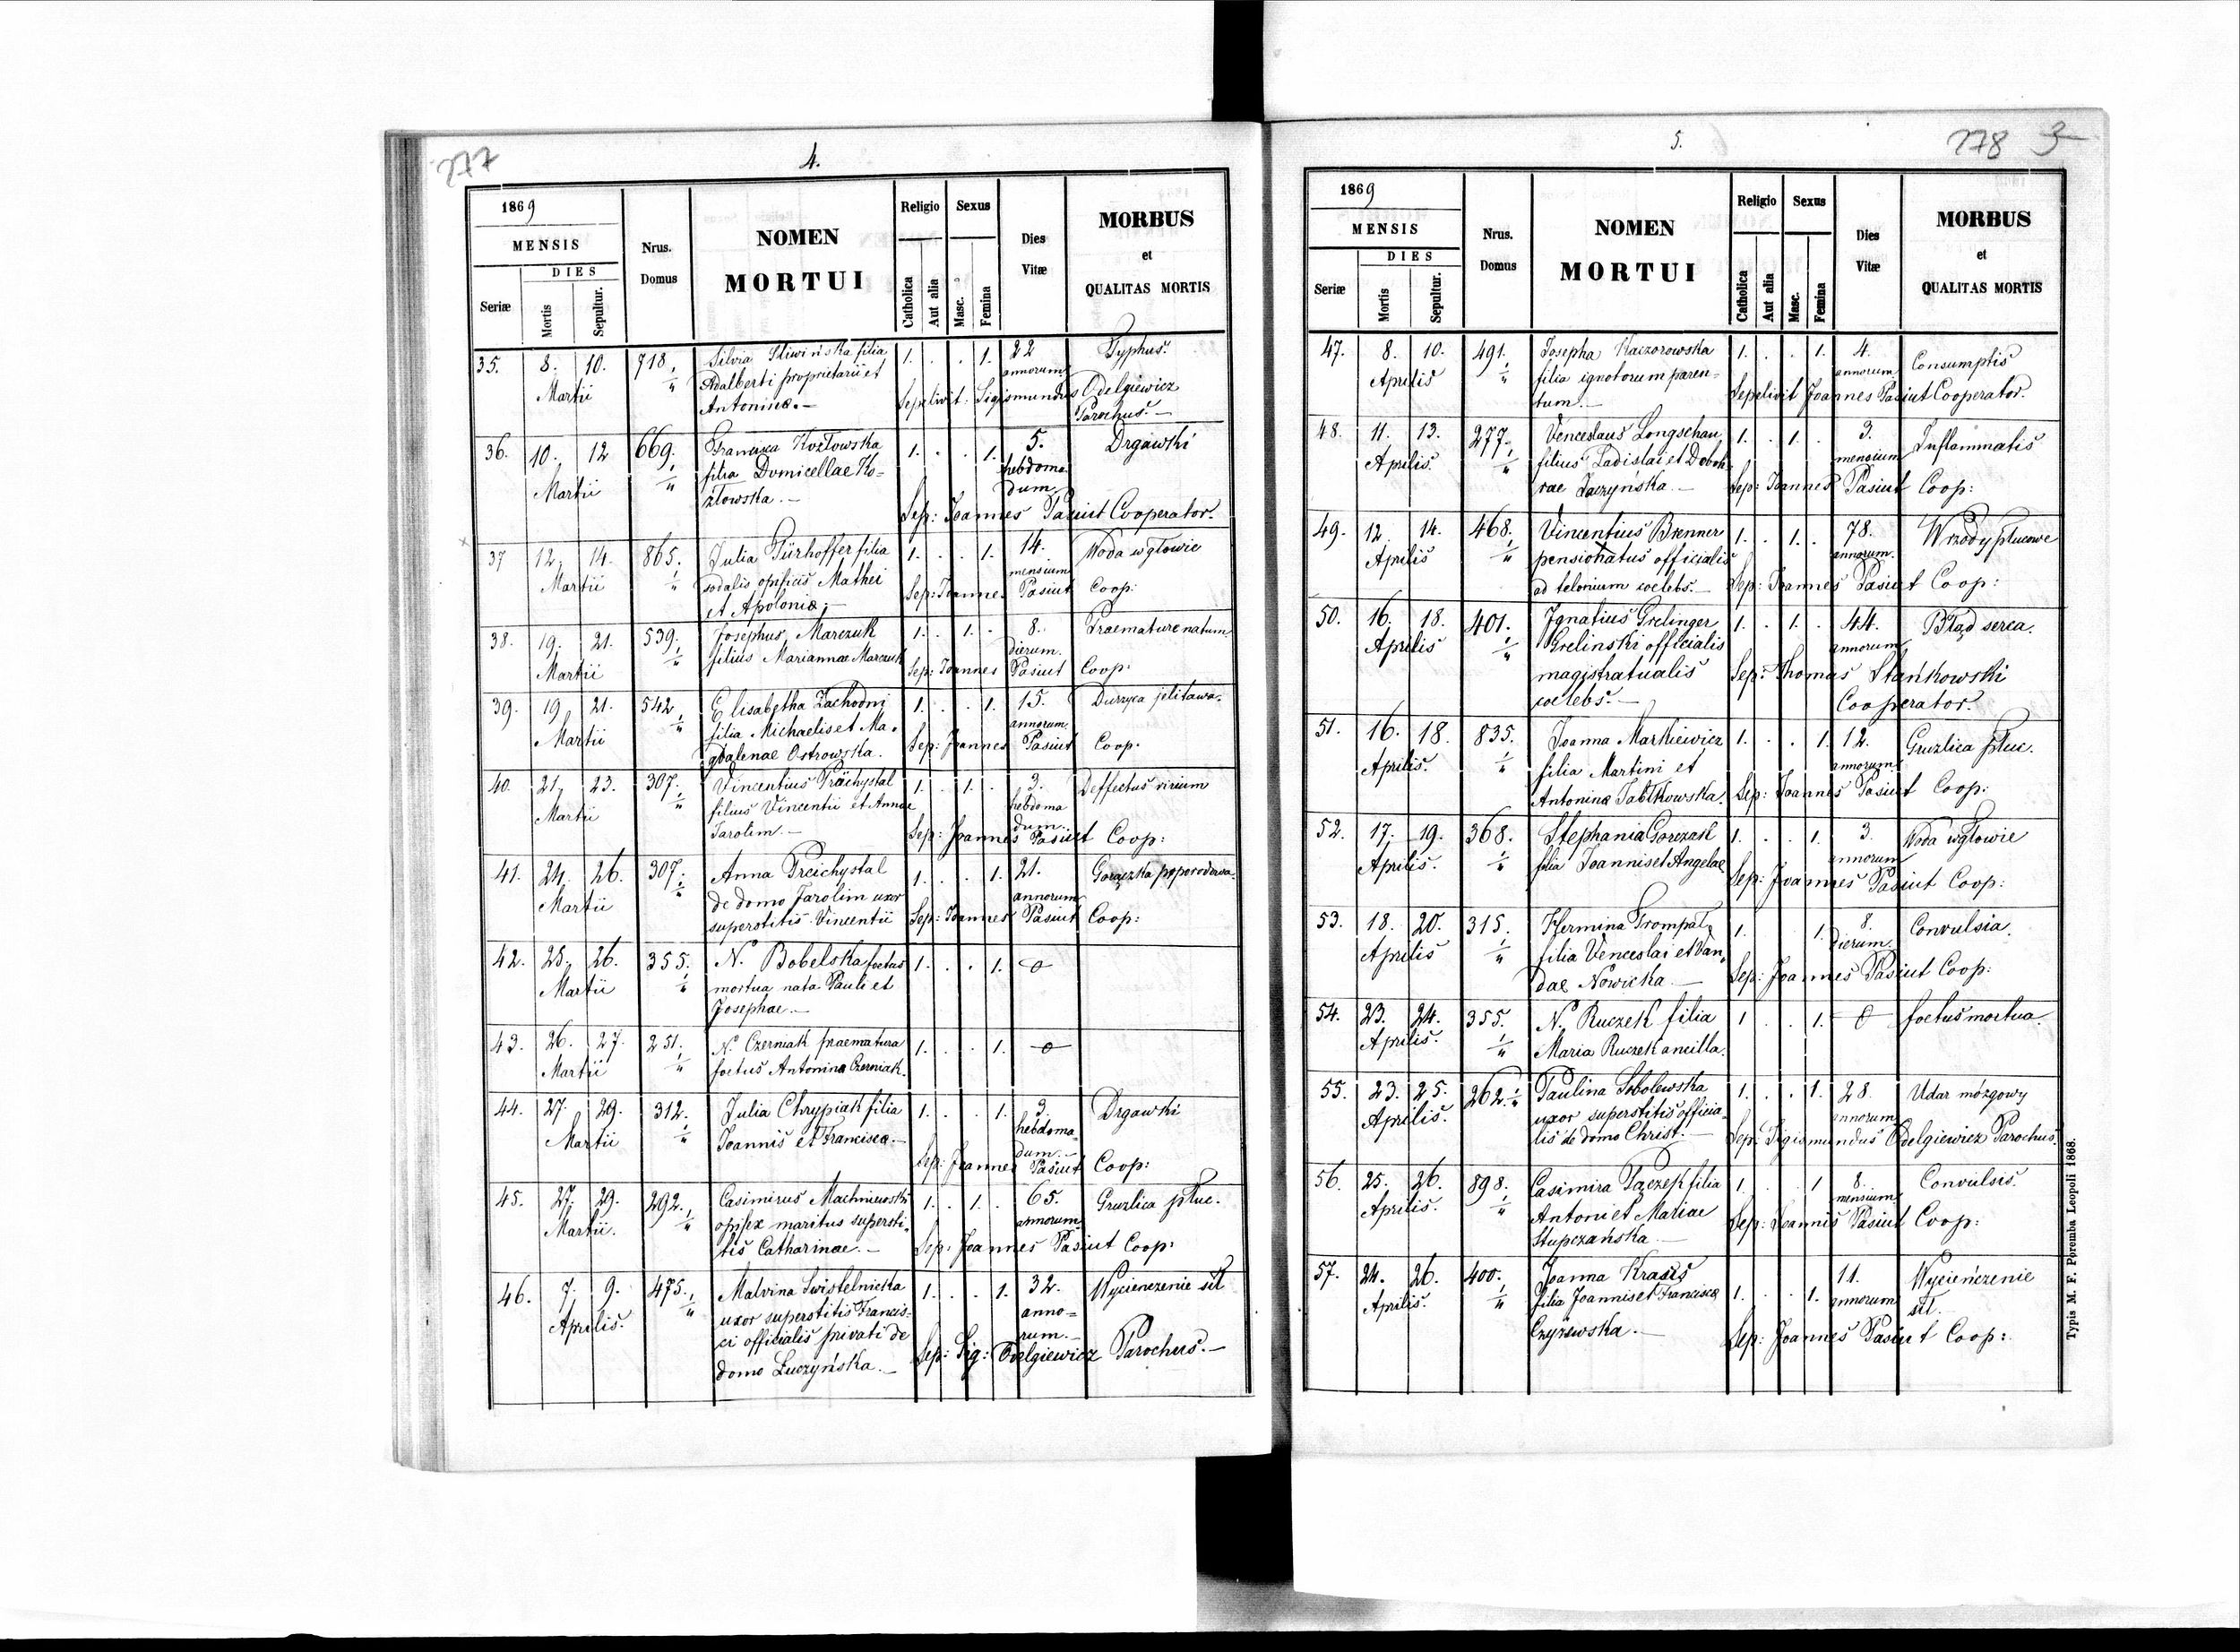 277
4.
1869
MENSIS
DIES
Seriæ
Mortis
Sepultur.
Nrus. Domus
NOMEN
MORTUI
Religio
Catholica
Aut alia
Sexus
Masc.
Femina
Dies
Vitæ
MORBUS
et
QUALITAS MORTIS
35. 8. 10. 718. Silvia Sliwińska filia 1. . . 1. 22 Typhus.
Martii Adalberti proprietarii et annorum
Antoninæ.— Sepelivit Sigismundus Odelgiewicz
Parochus.—
36. 10. 12 669. Francisca Kozłowska 1. . . 1. 5. Drgawki
Martii filia Domicellae Ko= hebdoma
złowska.— dum
Sep: Joannes Pasiut Cooperator.
37 12. 14. 865. Julia Türhoffer filia 1. . . 1. 14. Woda w głowie
Martii sodalis opificis Mathei mensium
et Apoloniæ.— Sep: Joannes Pasiut Coop:
38. 19. 21. 539. Josephus Marczuk 1. . 1. . 8. Praemature natum
Martii filius Mariannae Marczuk dierum.
Sep: Joannes Pasiut Coop:
39. 19. 21. 542. Elisabetha Zachodni 1. . . 1. 15. Durzyca jelitawa.
Martii filia Michaelis et Ma= annorum
gdalenae Ostrowska. Sep: Joannes Pasiut Coop.
40. 21. 23. 307. Vincentius Prächystal 1. . 1. . 3. Deffectus virium
Martii filius Vincentii et Annae hebdoma
Jarolim.— dum.
Sep: Joannes Pasiut Coop:
41. 24. 26. 307. Anna Preichystal 1. . . 1. 21. Gorączka poporodowa.
Martii de domo Jarolim uxor annorum
superstitis Vincentii Sep: Joannes Pasiut Coop:
42. 25. 26. 355. N. Bobelska foetus 1. . . 1. o
Martii mortua nata Pauli et
Josephae.—
43. 26. 27. 251. N. Czerniak praematura 1. . . 1. o
Martii foetus Antonina Czerniak.
44. 27. 29. 312. Julia Chrypiak filia 1. . . 1. 3. Drgawki
Martii Joannis et Franciscæ.— hebdoma=
dum.—
Sep: Joannes Pasiut Coop:
45. 27. 29. 292. Casimirus Machniewski 1. . 1. . 65. Gruzlica płuc.
Martii. opifex maritus supersti= annorum
tis Catharinae.— Sep: Joannes Pasiut Coop:
46. 7. 9. 475. Malvina Swistelnicka 1. . . 1. 32. Wycienczenie sił
Aprilis. uxor superstitis Francis= anno=
ci officialis privati de rum.—
domo Łuczyńska.— Sep: Sig: Odelgiewicz Parochus.—
278 3
5.
1869
MENSIS
DIES
Seriæ
Mortis
Sepultur.
Nrus. Domus
NOMEN
MORTUI
Religio
Catholica
Aut alia
Sexus
Masc.
Femina
Dies
Vitæ
MORBUS
et
QUALITAS MORTIS
47. 8. 10. 491. Josepha Kaczorowska 1. . . 1. 4. Consumptis
Aprilis filia ignotorum paren= annorum
tum.— Sepelivit Joannes Pasiut Cooperator.
48. 11. 13. 277. Venceslaus Longschau 1. . 1. . 3. Inflammatis
Aprilis. filius Ladislai et Debo mensium
rae Jaczynska.— Sep: Joannes Pasiut Coop:
49. 12. 14. 468. Vincentius Brenner 1. . 1. . 78. Wrzody płucowe
Aprilis pensionatus officialis annorum.
ad telonium coelebs.— Sep: Joannes Pasiut Coop:
50. 16. 18. 401. Ignatius Grelinger 1. . 1. . 44. Błąd serca.
Aprilis Grelinski officialis annorum
magistratualis Sep: Thomas Stańkowski
coelebs.— Cooperator.
51. 16. 18. 835. Joanna Markiewicz 1. . . 1. 12. Gruzlica płuc.
Aprilis. filia Martini et annorum
Antoninæ Jabłkowska. Sep: Joannes Pasiut Coop:
52. 17. 19. 368. Stephania Gorczak 1. . . 1. 3. Woda w głowie
Aprilis. filia Joannis et Angelae annorum
Sep: Joannes Pasiut Coop:
53. 18. 20. 315. Hermina Trompat 1. . 1. 8. Convulsia.
Aprilis filia Venceslai et Van= dierum
dae Nowicka.— Sep: Joannes Pasiut Coop:
54. 23. 24. 355. N. Ruczek filia 1 . . 1. o foetus mortua.
Aprilis. Maria Ruczek ancilla.
55. 23. 25. 262. Paulina Sobolewska 1. . . 1. 28. Udar mózgowy
Aprilis. uxor superstitis officia= annorum
lis de domo Christ.— Sep: Sigismundus Odelgiewicz Parochus.
56. 25. 26. 898. Casimira Pączek filia 1. . 1 8. Convulsis.
Aprilis. Antoni et Mariae mensium
Stupczańska Sep: Joannis Pasiut Coop:
57. 24. 26. 400. Joanna Krasis 1. . 1. 11. Wycieńczenie
Aprilis. filia Joannis et Franciscæ annorum sił.
Czyżewska.— Sep: Joannes Pasiut Coop:
Typis M. F. Poremba Leopoli 1868.